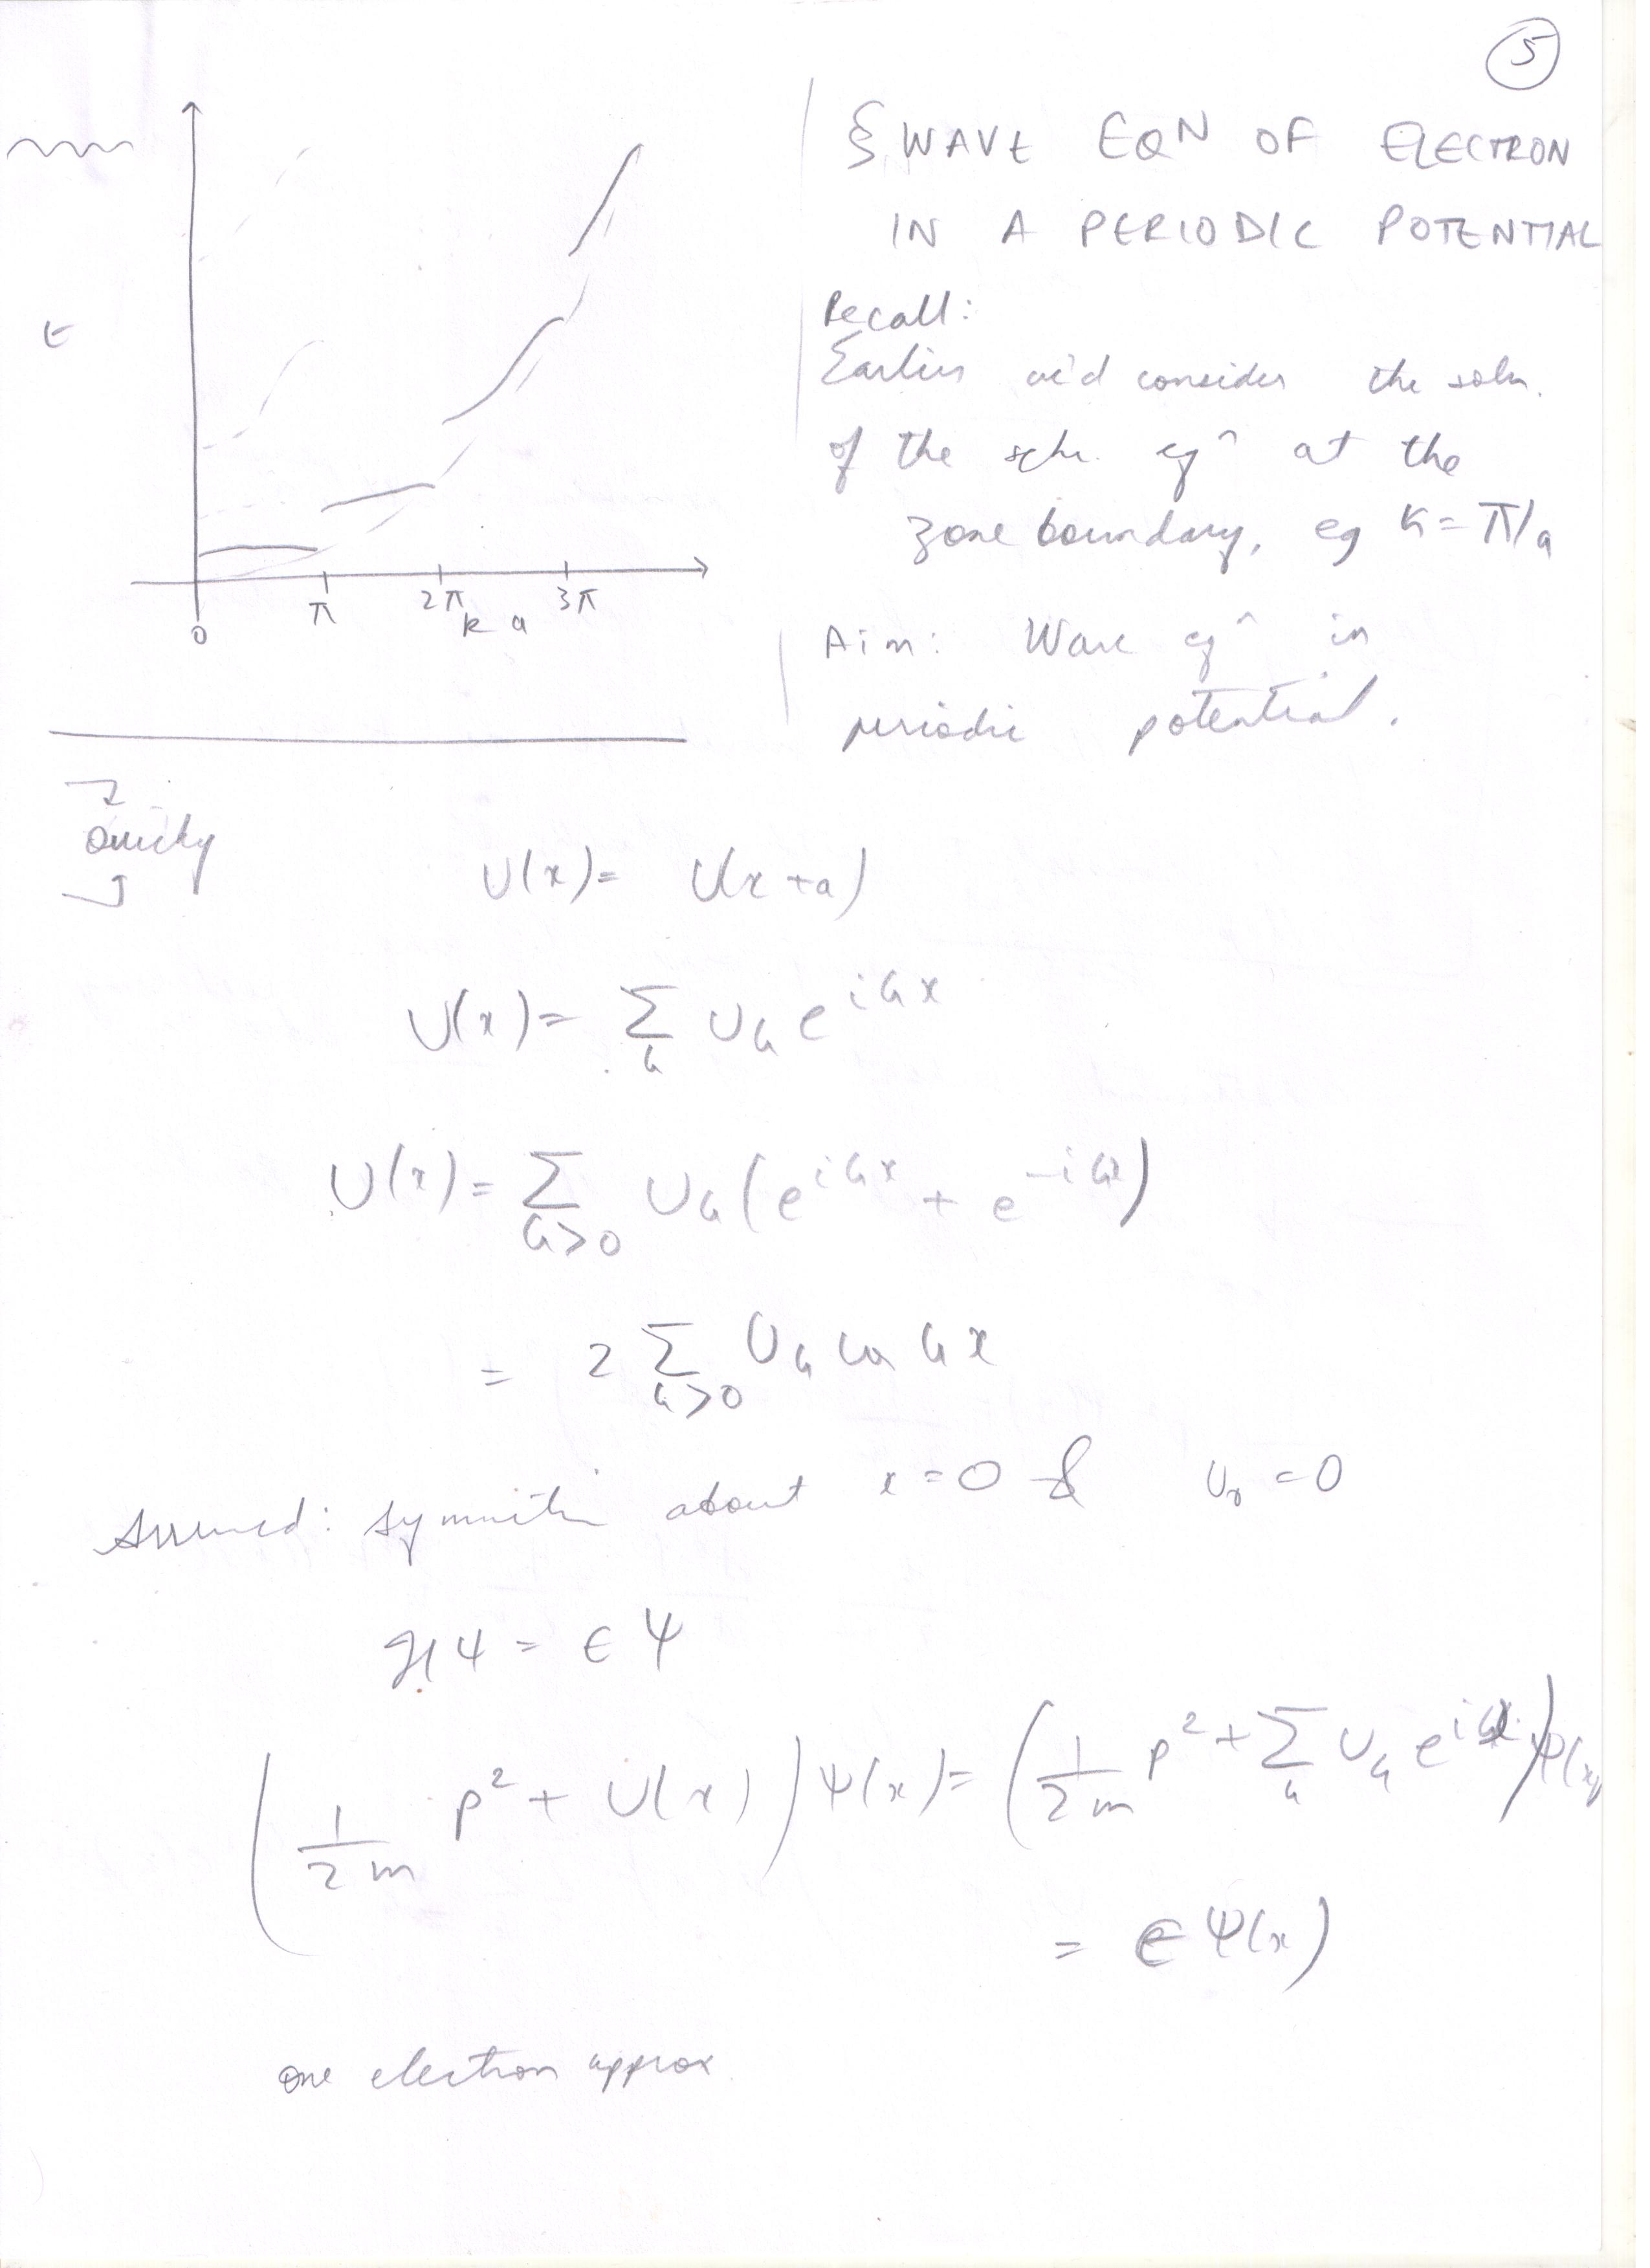 5
§ WAVE EQN OF ELECTRON
IN A PERIODIC POTENTIAL
Recall:
Earlier we'd consider the soln.
of the schr. eqⁿ at the
zone boundary, eg k = π/a
Aim: Wave eqⁿ in
periodic potential.
ε
0 π 2π 3π
k a
Quicky
U(x) = U(x+a)
U(x) = Σ_G U_G e^{iGx}
U(x) = Σ_{G>0} U_G (e^{iGx} + e^{-iGx})
= 2 Σ_{G>0} U_G cos Gx
Assumed: symmetric about x=0 & U_0 = 0
ℋψ = ϵψ
(1/2m p² + U(x)) ψ(x) = (1/2m p² + Σ_G U_G e^{iGx}) ψ(x)
= ϵ ψ(x)
one electron approx.